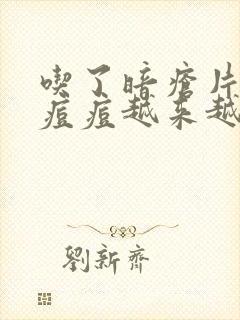 喫了暗瘡片
痘痘越來越
劉新齊